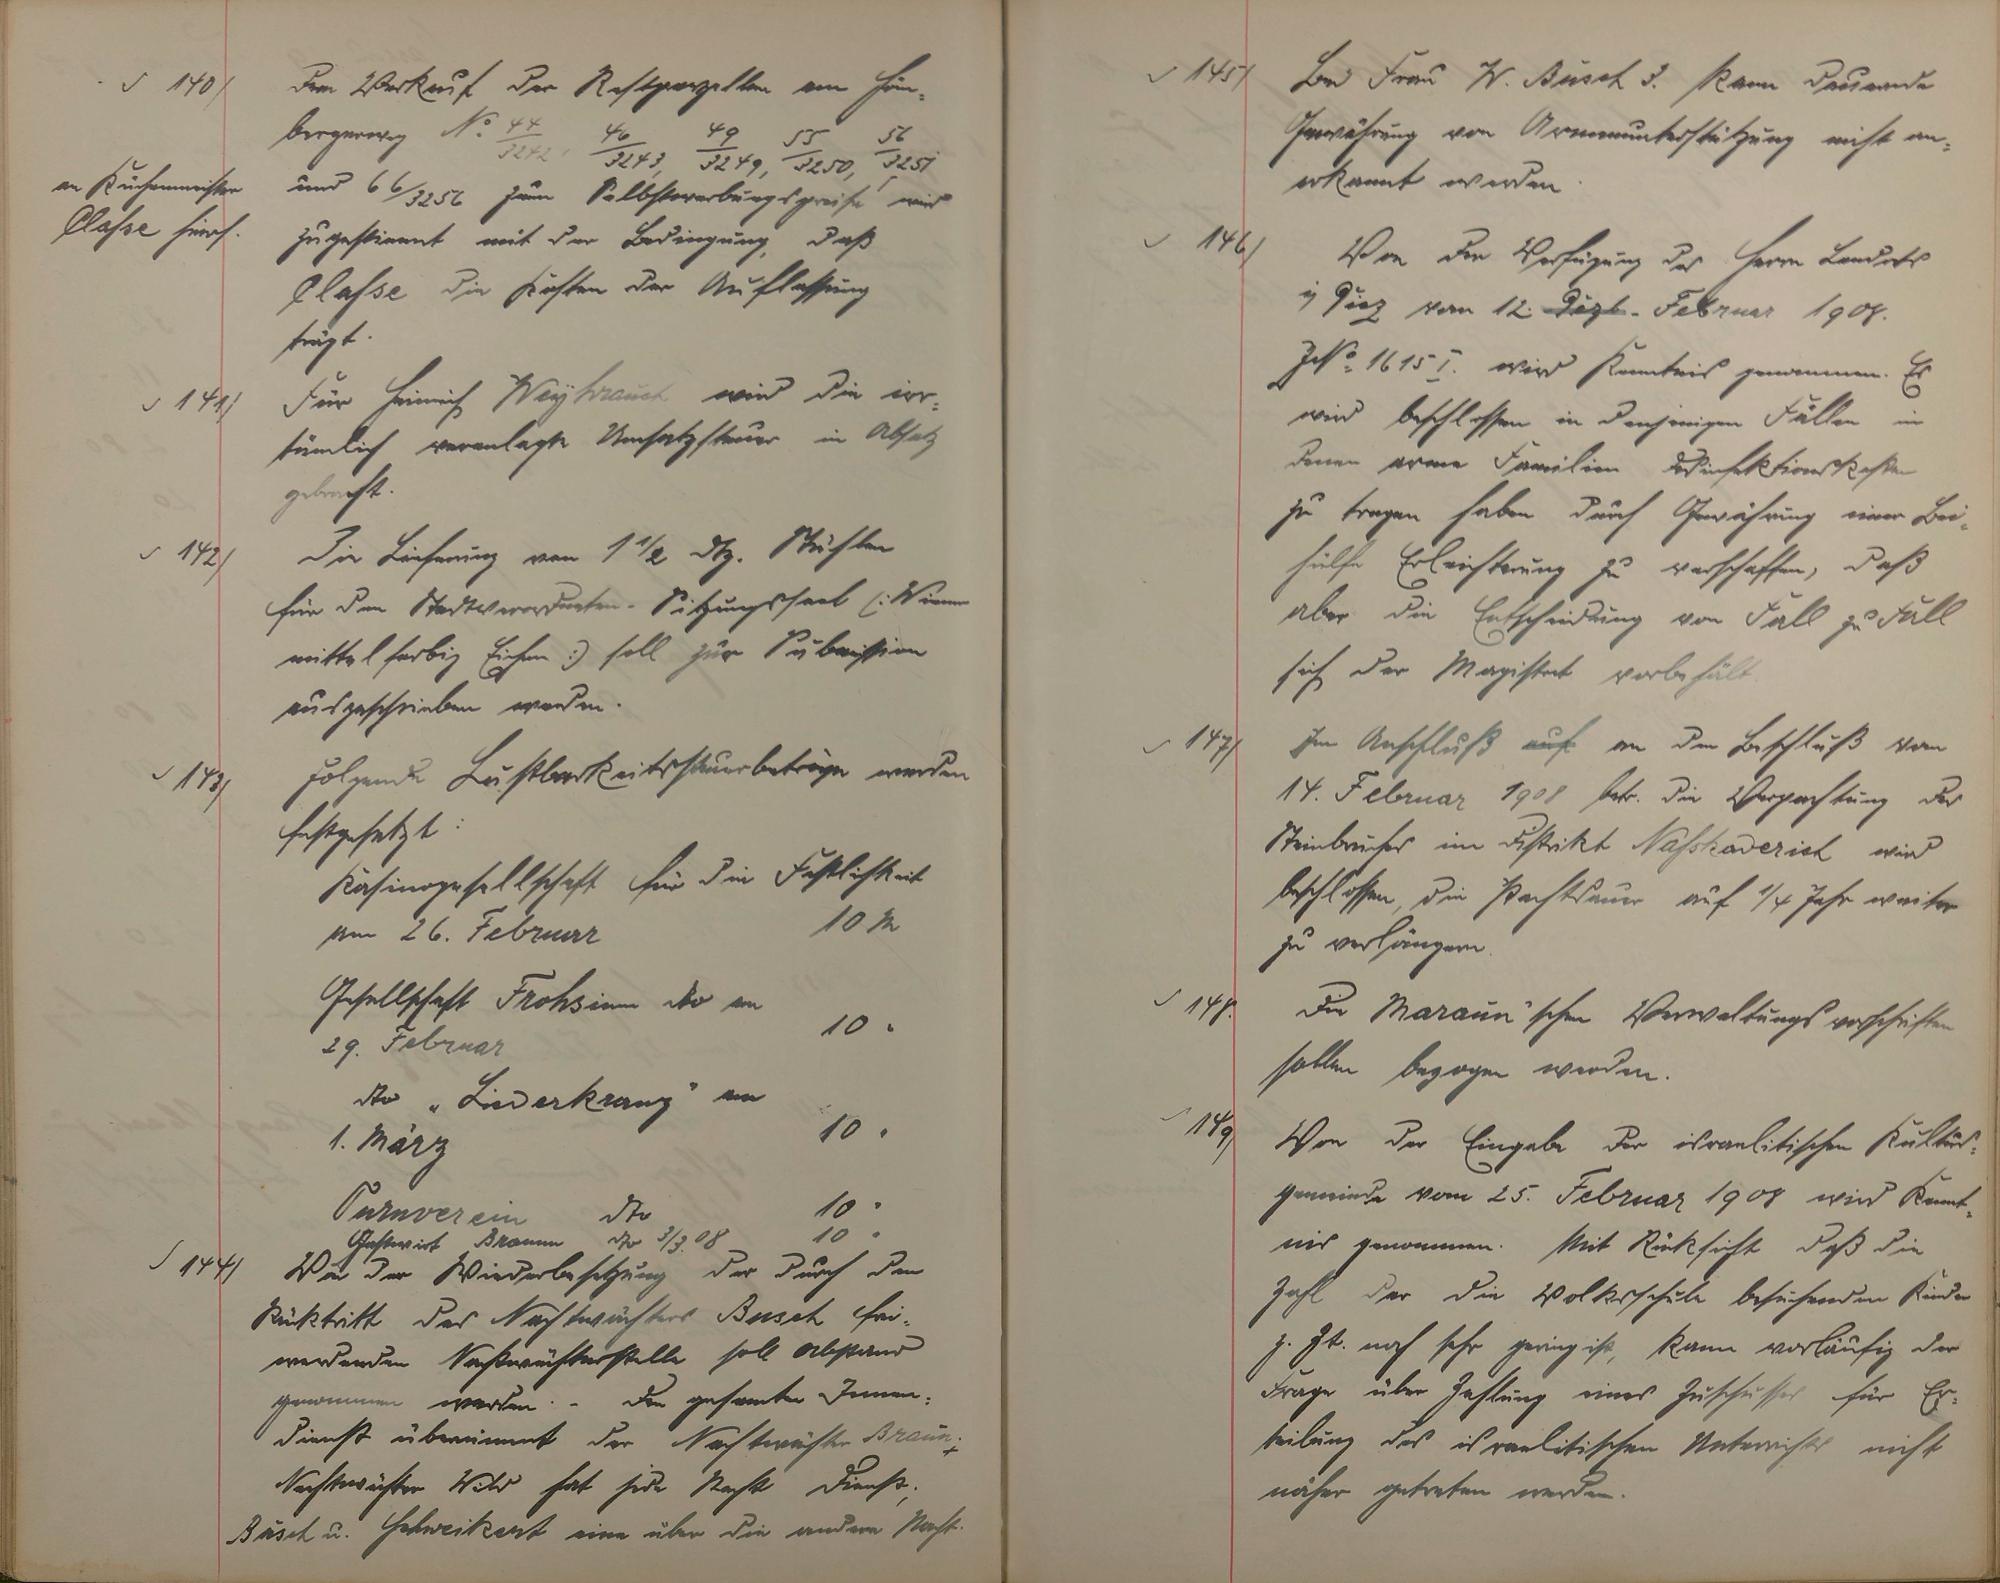 140) Dem Verkauf der Restparzellen am Hön-
bergerweg No. 44/3242, 46/3243, 49/3249, 55/3250, 56/3251
an Küchenmeister
Classe hier.
und 66/3256 zum Selbsterwerbungspreise wird
zugestimmt mit der Bedingung, daß
Classe die Kosten der Auflassung
trägt.
141) Für Heinrich Weyhrauch wird die irr-
tümlich veranlagte Umsatzsteuer in Absatz
gebracht.
142) Die Lieferung von 1 1/2 Dtz. Stühlen
für den Stadtverordneten-Sitzungssaal (: Wiener
mittelfarbig Eichen :) soll zur Submission
ausgeschrieben werden.
143) Folgende Lustbarkeitssteuerbeträge werden
festgesetzt:
Kasinogesellschaft für die Festlichkeit
am 26. Februar 10 M
Gesellschaft Frohsinn dto am
29. Februar 10 "
dto „Liederkranz" am
1. März 10 "
Turnverein dto 10 "
Gastwirt Braun dto 3/3.08 10 "
144) Von der Wiederbesetzung der durch den
Rücktritt des Nachtwächters Busch frei-
werdenden Nachtwächterstelle soll Abstand
genommen werden. - Den gesamten Innen-
dienst übernimmt der Nachtwächter Braun.
Nachtwächter Wild hat jede Nacht Dienst,
Busch u. Schweikert eine über die andere Nacht.
145) Bei Frau W. Busch 3. kann dauernde
Gewährung von Armenunterstützung nicht an-
erkannt werden.
146) Von der Verfügung des Herrn Landrats
in Diez vom 12. Dezb. Februar 1908.
J No. 1615 I. wird Kenntnis genommen. Es
wird beschlossen in denjenigen Fällen in
denen arme Familien Desinfektionskosten
zu tragen haben durch Gewährung einer Bei-
hülfe Erleichterung zu verschaffen, daß
aber die Entscheidung von Fall zu Fall
sich der Magistrat vorbehält.
147) Im Anschluß auf an den Beschluß vom
14. Februar 1908 betr. die Verpachtung des
Steinbruches im Distrikt Nasskaderich wird
beschlossen, die Pachtdauer auf 1/4 Jahr weiter
zu verlängern.
148. Die Maraun'schen Verwaltungsvorschriften
sollen bezogen werden.
149) Von der Eingabe der israelitischen Kultus-
gemeinde vom 25. Februar 1908 wird Kennt-
nis genommen. Mit Rücksicht daß die
Zahl der die Volksschule besuchenden Kinder
z. Zt. noch sehr gering ist, kann vorläufig der
Frage über Zahlung eines Zuschusses für Er-
teilung des israelitischen Unterrichts nicht
näher getreten werden.